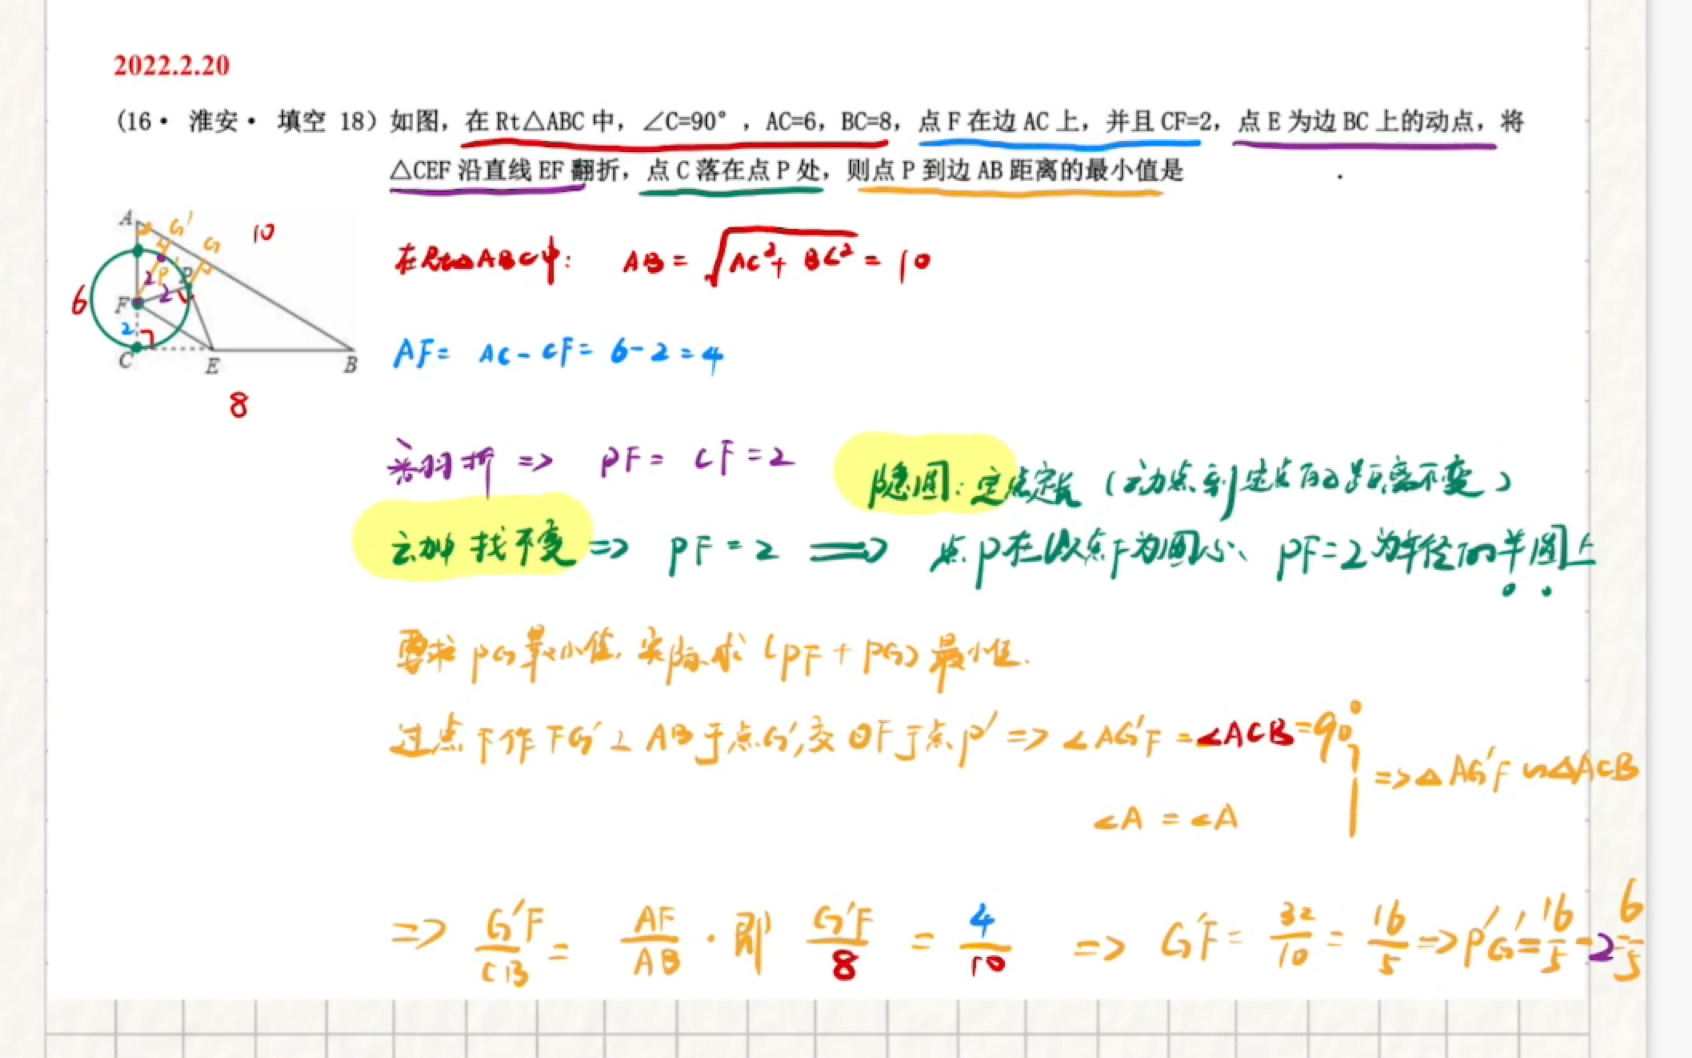 2022.2.20
(16· 淮安· 填空 18) 如图, 在 Rt△ABC 中, ∠C=90°, AC=6, BC=8, 点 F 在边 AC 上, 并且 CF=2, 点 E 为边 BC 上的动点, 将
△CEF 沿直线 EF 翻折, 点 C 落在点 P 处, 则点 P 到边 AB 距离的最小值是 .
A G' G 10
P' P
6 F 2 2
2
C E B
8
在Rt△ABC中: AB = √AC²+BC² = 10
AF = AC - CF = 6-2 = 4
翻折 => PF = CF = 2 隐圆: 定点定长 (动点到定点的距离不变)
动中找不变 => PF = 2 => 点P在以点F为圆心、PF=2为半径的半圆上
要求PG最小值, 实际求 (PF+PG) 最小值.
过点F作FG'⊥AB于点G', 交⊙F于点P' => ∠AG'F = ∠ACB = 90°
=> △AG'F ∽ △ACB
∠A = ∠A
=> G'F/CB = AF/AB . 即 G'F/8 = 4/10 => G'F = 32/10 = 16/5 => P'G' = 16/5 - 2 = 6/5